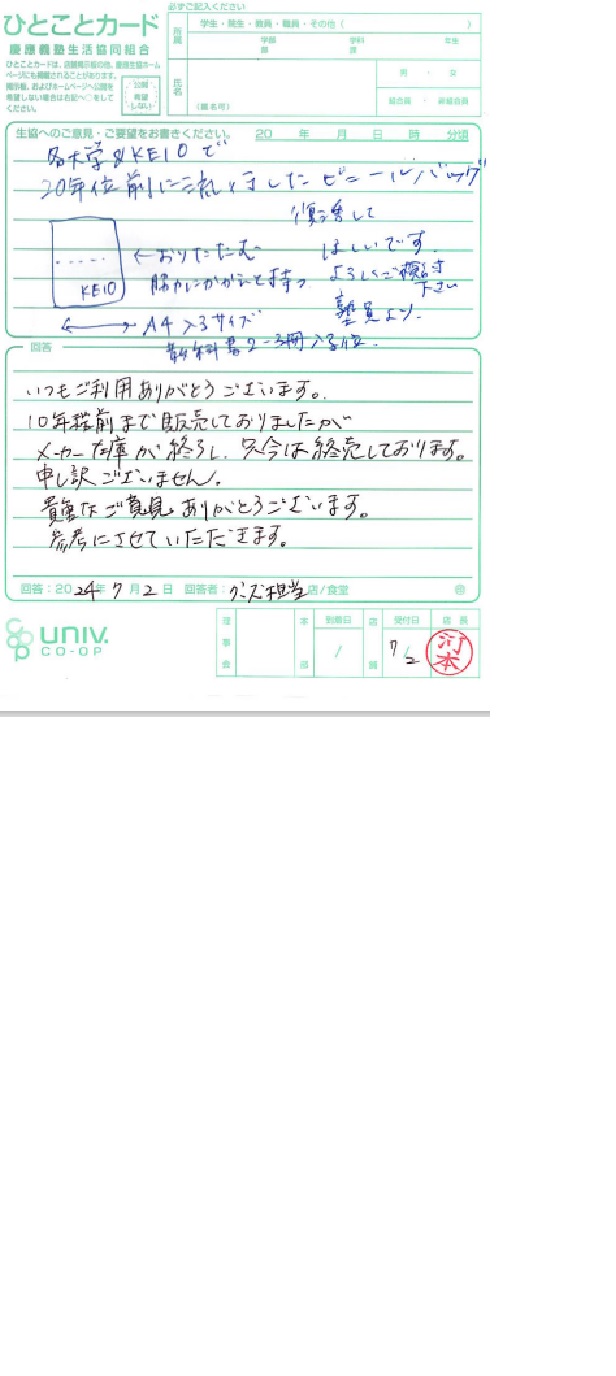 必ずご記入ください
ひとことカード
慶應義塾生活協同組合
ひとことカードは、店舗掲示板の他、慶應生協ホーム
ページにも掲載されることがあります。
掲示板、およびホームページへ公開を
希望しない場合は右記へ○をして
ください。
公開
希望
しない
所属
学生・院生・教員・職員・その他（　　　）
学部　学科　年生
氏名
（匿名可）
男 ・ 女
組合員 ・ 非組合員
生協へのご意見・ご要望をお書きください。 20 年 月 日 時 分頃
各大学&KEIOで
20年位前に売れてましたビニールバッグ
復習して
ほしいです。
よろしくご検討
下さい
塾員より.
←おりたたむ
脇にかかえて持つ
KEIO
A4 >3サイズ
教科書2〜3冊入る位.
回答
いつもご利用ありがとうございます。
10年程前まで販売しておりましたが
メーカー在庫が終了し、只今は終売しております。
申し訳ございません。
貴重なご意見ありがとうございます。
参考にさせていただきます。
回答：2024年 7月 2日 回答者：グッズ担当 店/食堂 ㊞
UNIV.
CO-OP
理事会
本部
到着日
/
店舗
受付日
7/2
店長
河本